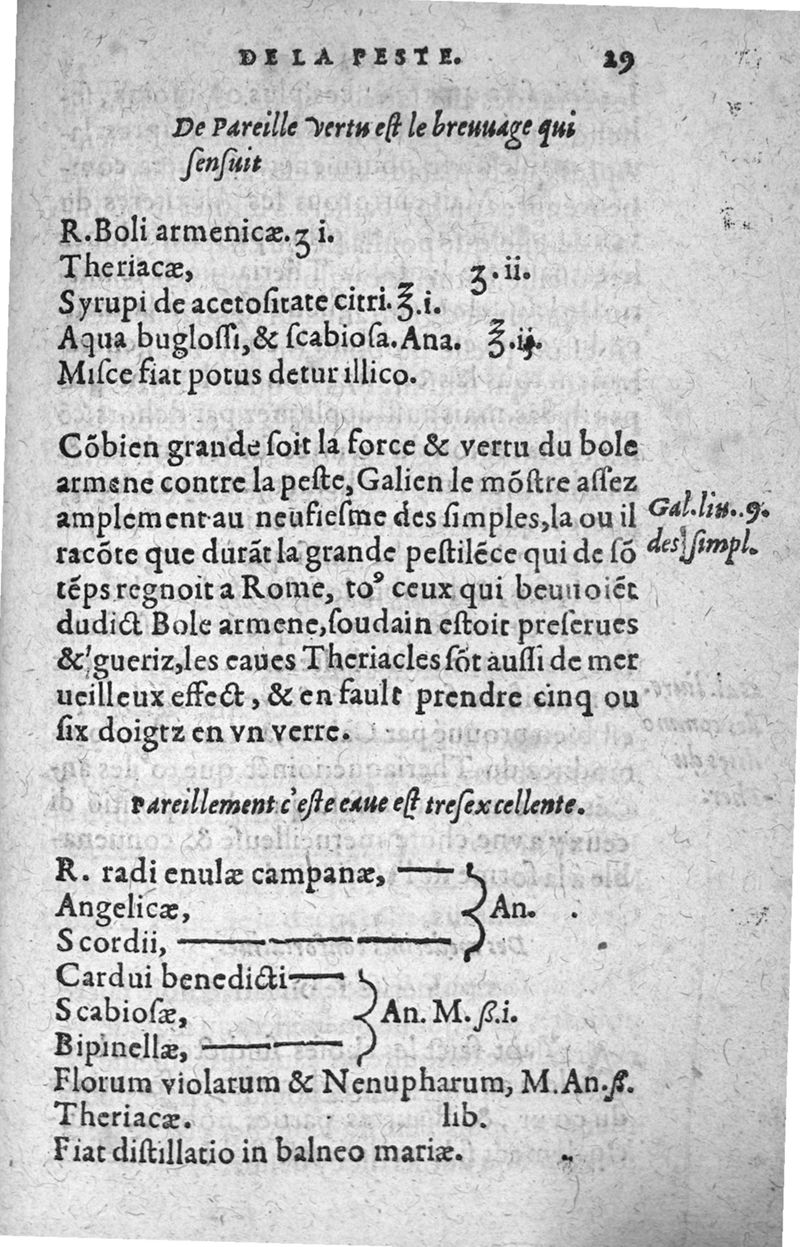 DE LA PESTE. 29
De Pareille vertu est le breuuage qui
sensuit
R. Boli armenicæ. ʒ i.
Theriacæ, ʒ. ii.
Syrupi de acetositate citri. ℥. i.
Aqua buglossi, & scabiosa. Ana. ℥. ij.
Misce fiat potus detur illico.
Cõbien grande soit la force & vertu du bole
armene contre la peste, Galien le mõstre assez
amplement au neufiesme des simples, la ou il
racõte que durãt la grande pestilẽce qui de sõ
tẽps regnoit a Rome, toꝰ ceux qui beuuoiẽt
dudict Bole armene, soudain estoit preserues
& gueriz, les eaues Theriacles sõt aussi de mer
ueilleux effect, & en fault prendre cinq ou
six doigtz en vn verre.
Gal. liu.. 9.
des simpl.
Pareillement c'este eaue est tresexcellente.
R. radi enulæ campanæ,
Angelicæ, An.
Scordii,
Cardui benedicti
Scabiosæ, An. M. ß. i.
Bipinellæ,
Florum violarum & Nenupharum, M. An. ß.
Theriacæ. lib.
Fiat distillatio in balneo mariæ.